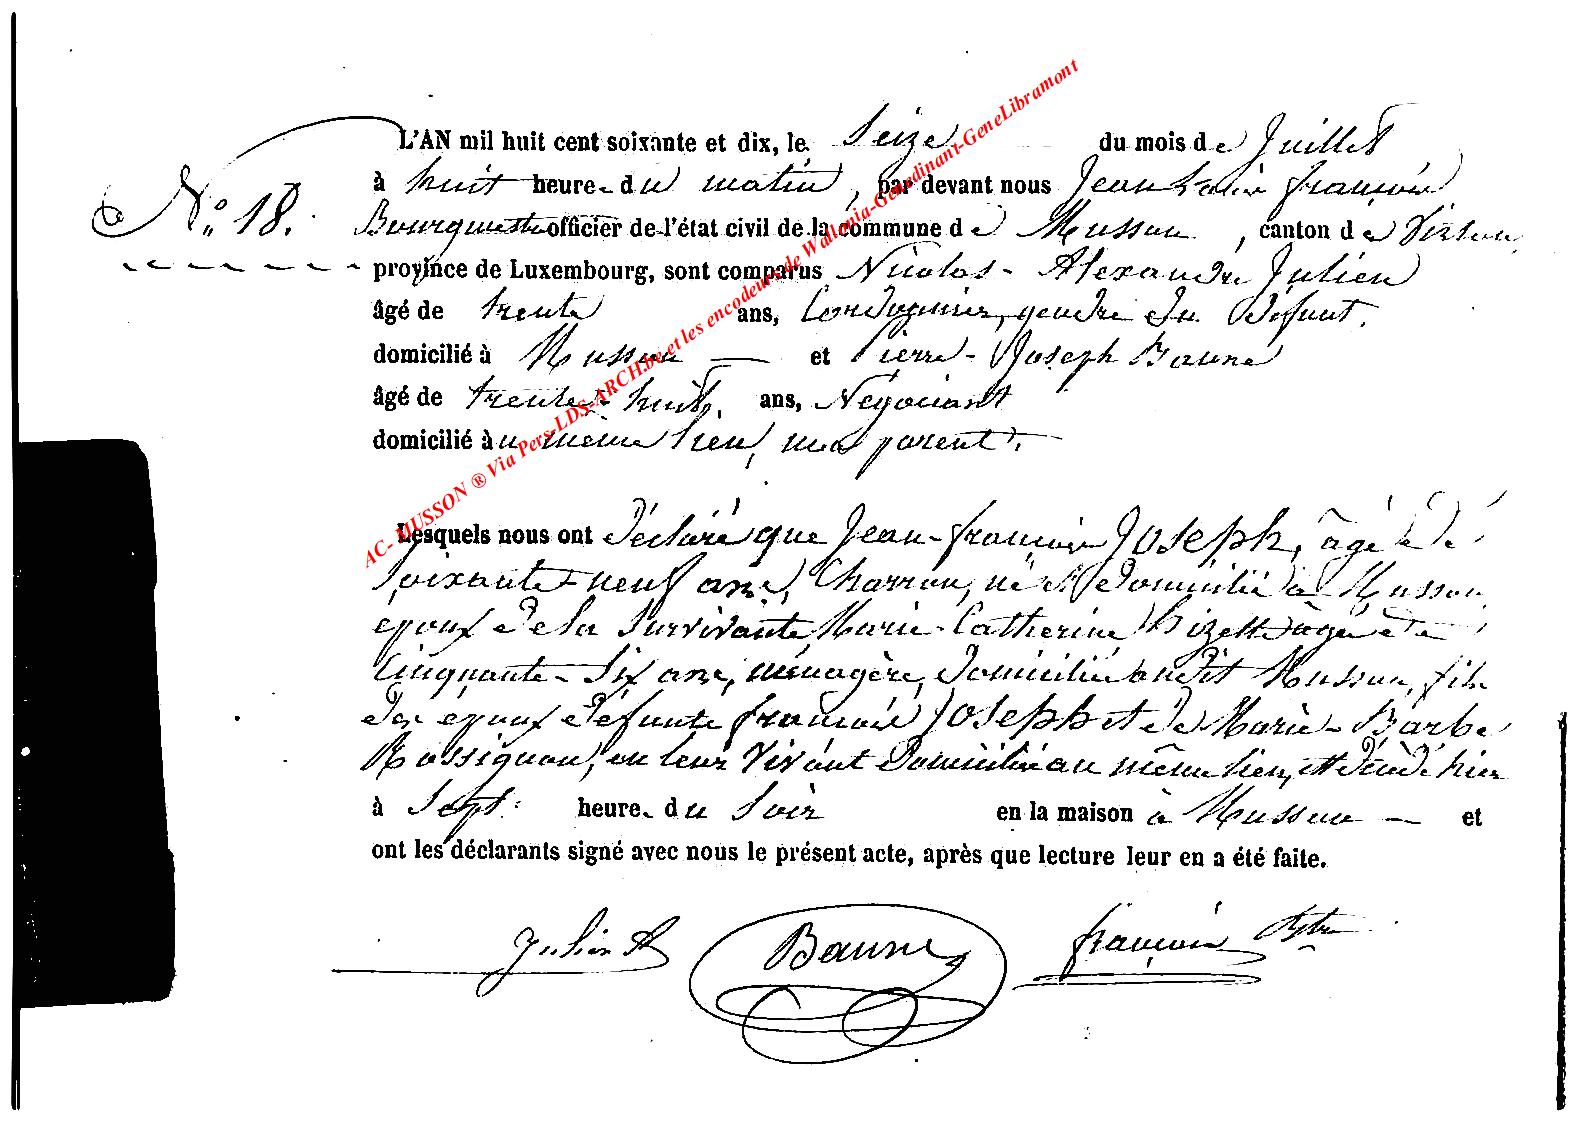 L'AN mil huit cent soixante et dix, le Seize du mois de Juillet
N° 18. à huit heure du matin, par devant nous Jean françois
Bourguette officier de l'état civil de la commune de Musson, canton de Virton,
province de Luxembourg, sont comparus Nicolas-Alexandre Julien
âgé de trente ans, Cordonnier, gendre du Défunt,
domicilié à Musson et Pierre-Joseph Baune
âgé de trente-huit, ans, Négociant
domicilié àu même lieu, non parent.
Lesquels nous ont Déclaré que Jean-françois Joseph, âgé de
soixante-neuf ans, Charron, né et Domicilié à Musson
epoux De la Survivante Marie-Catherine Bizette âgée de
Cinquante-Six ans, ménagère, Domiciliée au dit Musson, fils
Des epoux Défunts françois Joseph et de Marie-Barbe
Rossignon, en leur Vivant Domiciliés au même lieu, est Décédé hier
à Sept heure du Soir en la maison à Musson et
ont les déclarants signé avec nous le présent acte, après que lecture leur en a été faite.
Julien A Baune françois
AC- MUSSON ® Via Pers-LDS-ARCH.be et les encodeurs de Wallonia-Genedinant-GeneLibramont